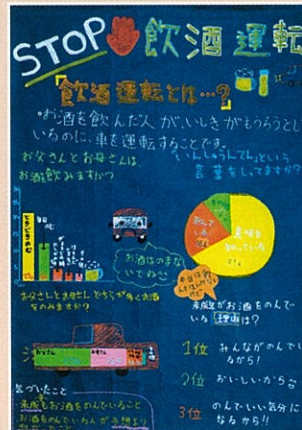 STOP 飲酒運転
『飲酒運転とは…?』
・お酒を飲んだ人が、いしきがもうろうとして
いるのに、車を運転することです。
お父さんとお母さんは、
お酒飲みますか?
いんしゅうんてんという
言葉をしってますか?
意味も
知っている
お酒はのまな
いでね
お父さんとお母さん どちらが多くお酒
をのみますか?
未成年がお酒をのんで
いる理由は?
1位 みんながのんでい
るから!
2位 おいしいから
3位 のんでいい気分に
なるから!!
気づいたこと
未成年もお酒をのんでいること
お酒をのんでいる人が